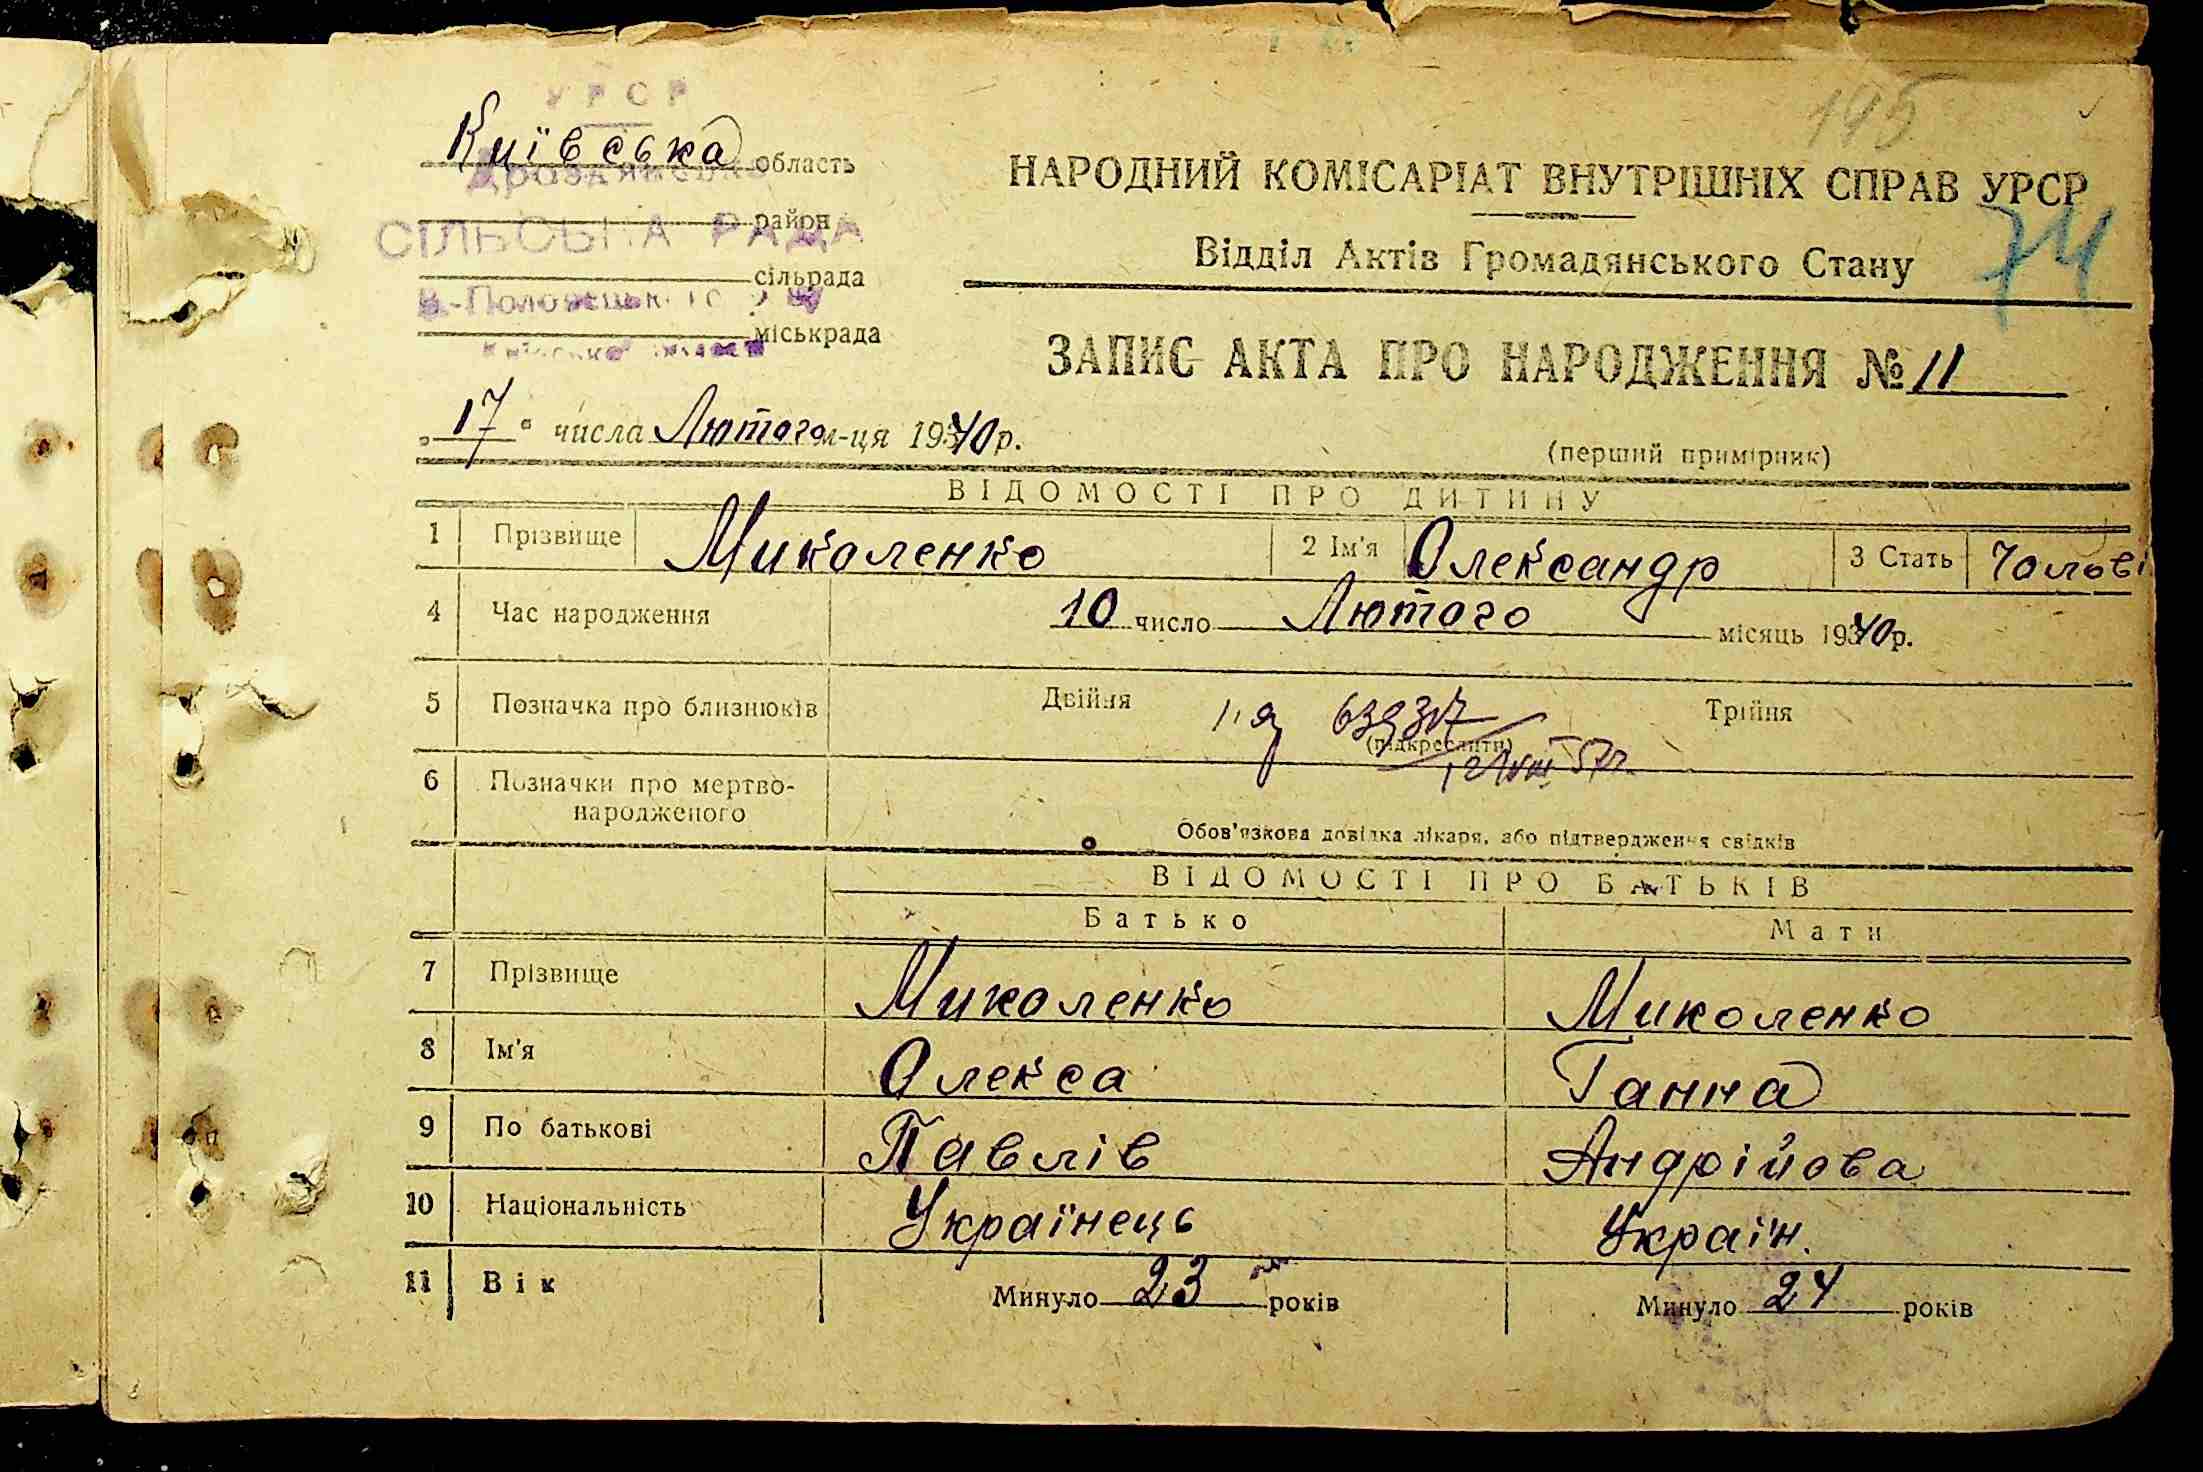 УРСР
Київська область
Дроздянська
район
СІЛЬСЬКА РАДА
сільрада
В.-Половецького р-ну
міськрада
Київської області
195
НАРОДНИЙ КОМІСАРІАТ ВНУТРІШНІХ СПРАВ УРСР
74
Відділ Актів Громадянського Стану
ЗАПИС АКТА ПРО НАРОДЖЕННЯ № 11
„17" числа Лютого м-ця 1940 р.
(перший примірник)
ВІДОМОСТІ ПРО ДИТИНУ
1 Прізвище Миколенко 2 Ім'я Олександр 3 Стать Чолові
4 Час народження 10 число Лютого місяць 1940 р.
5 Позначка про близнюків Двійня Трійня
(підкреслити)
57 г.
6 Позначки про мертво-
народженого
Обов'язкова довідка лікаря, або підтвердження свідків
ВІДОМОСТІ ПРО БАТЬКІВ
Батько Мати
7 Прізвище Миколенко Миколенко
8 Ім'я Олекса Ганна
9 По батькові Павлів Андрійова
10 Національність Українець Україн.
11 Вік Минуло 23 років Минуло 24 років